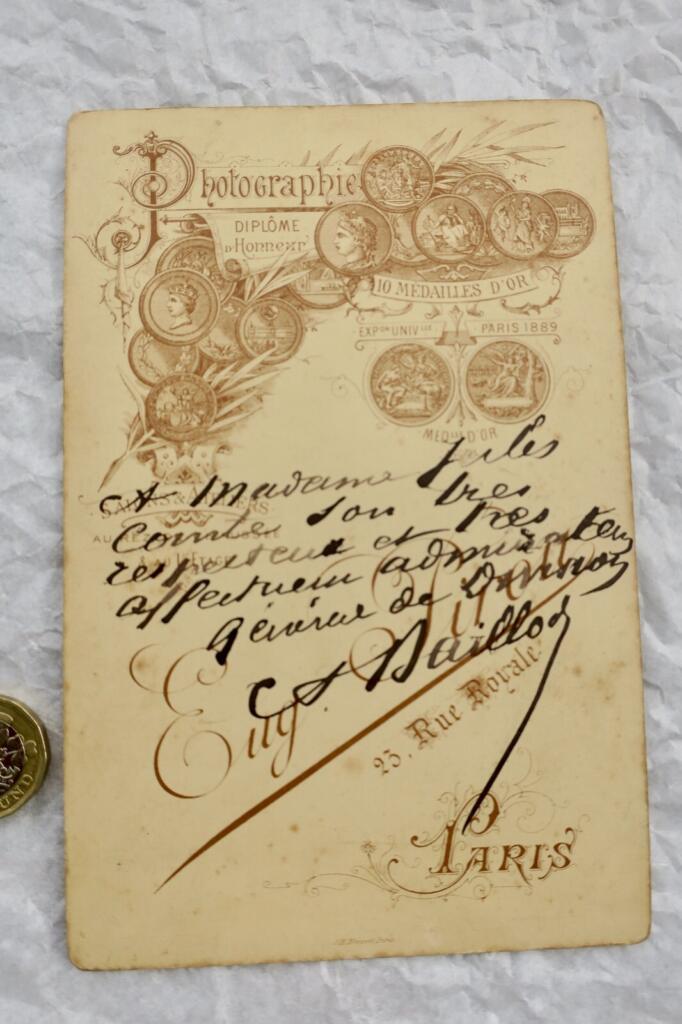 Photographie
DIPLÔME
D'Honneur
10 MÉDAILLES D'OR
EXPON UNIVLLE PARIS 1889
MED D'OR
SALONS & ATELIERS
A Madame Jules
Comte son très
respectueux et très
affectueux admirateur
Général de Division
Eug. Pirou
23, Rue Royale
PARIS
UND